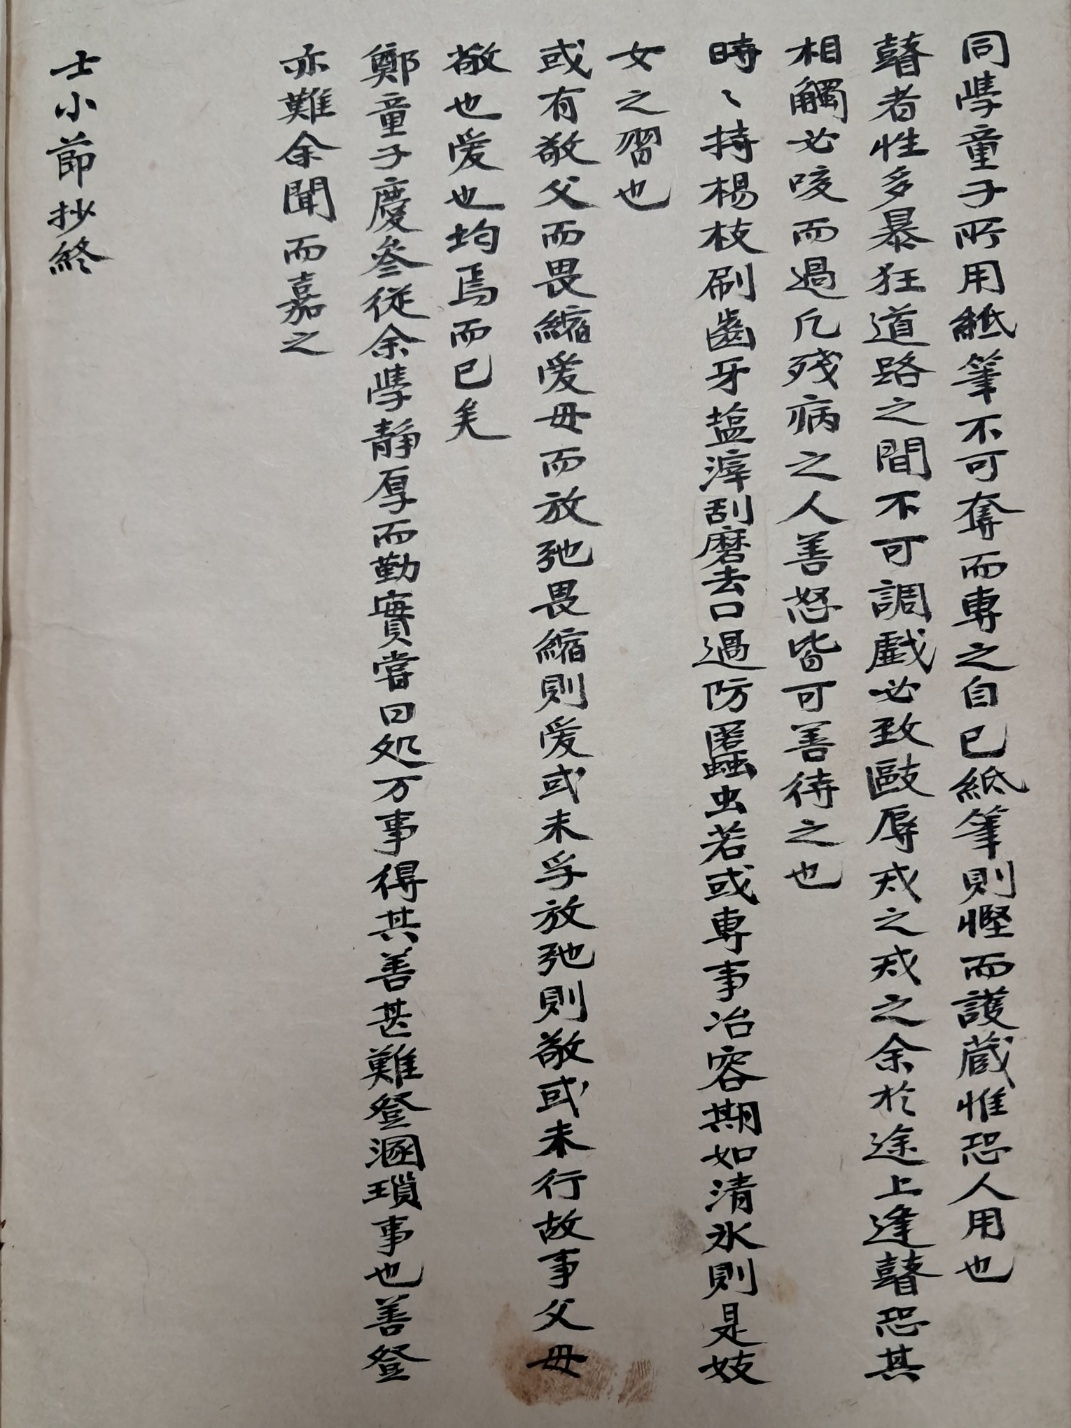 同學童子所用紙筆不可奪而專之自己紙筆則慳而護蔵惟恐人用也
瞽者性多暴狂道路之間不可調戱必致敺辱戒之戒之余於途上逢瞽恐其
相觸必咳而過凡殘病之人善怒皆可善待之也
時〻持楊枝刷齒牙盐滓刮磨去口過防䘌虫若或専事冶容期如清氷則是妓
女之習也
或有敬父而畏縮愛母而放弛畏縮則愛或未孚放弛則敬或未行故事父母
敬也愛也均焉而已矣
鄭童子慶叅從余學静厚而勤實甞曰処万事得其善甚難登溷瑣事也善登
亦難余聞而嘉之
士小節抄終